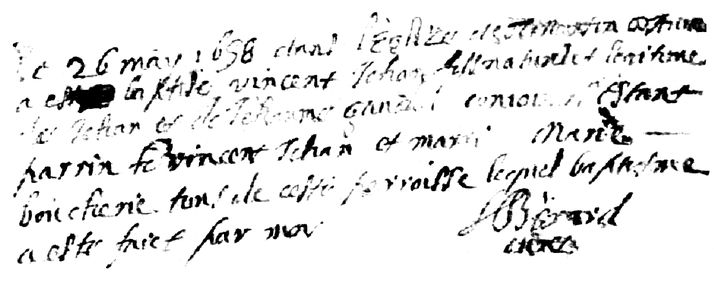 Le 26 may 1658 dans l'Eglize de
a este baptisé vincent Jehan fils naturel et legitime
de Jehan et de Jehanne estant
parrin vincent Jehan et marri Marie
boucherie tous de ceste parroisse lequel baptesme
a este faict par moy
Bérard
curé